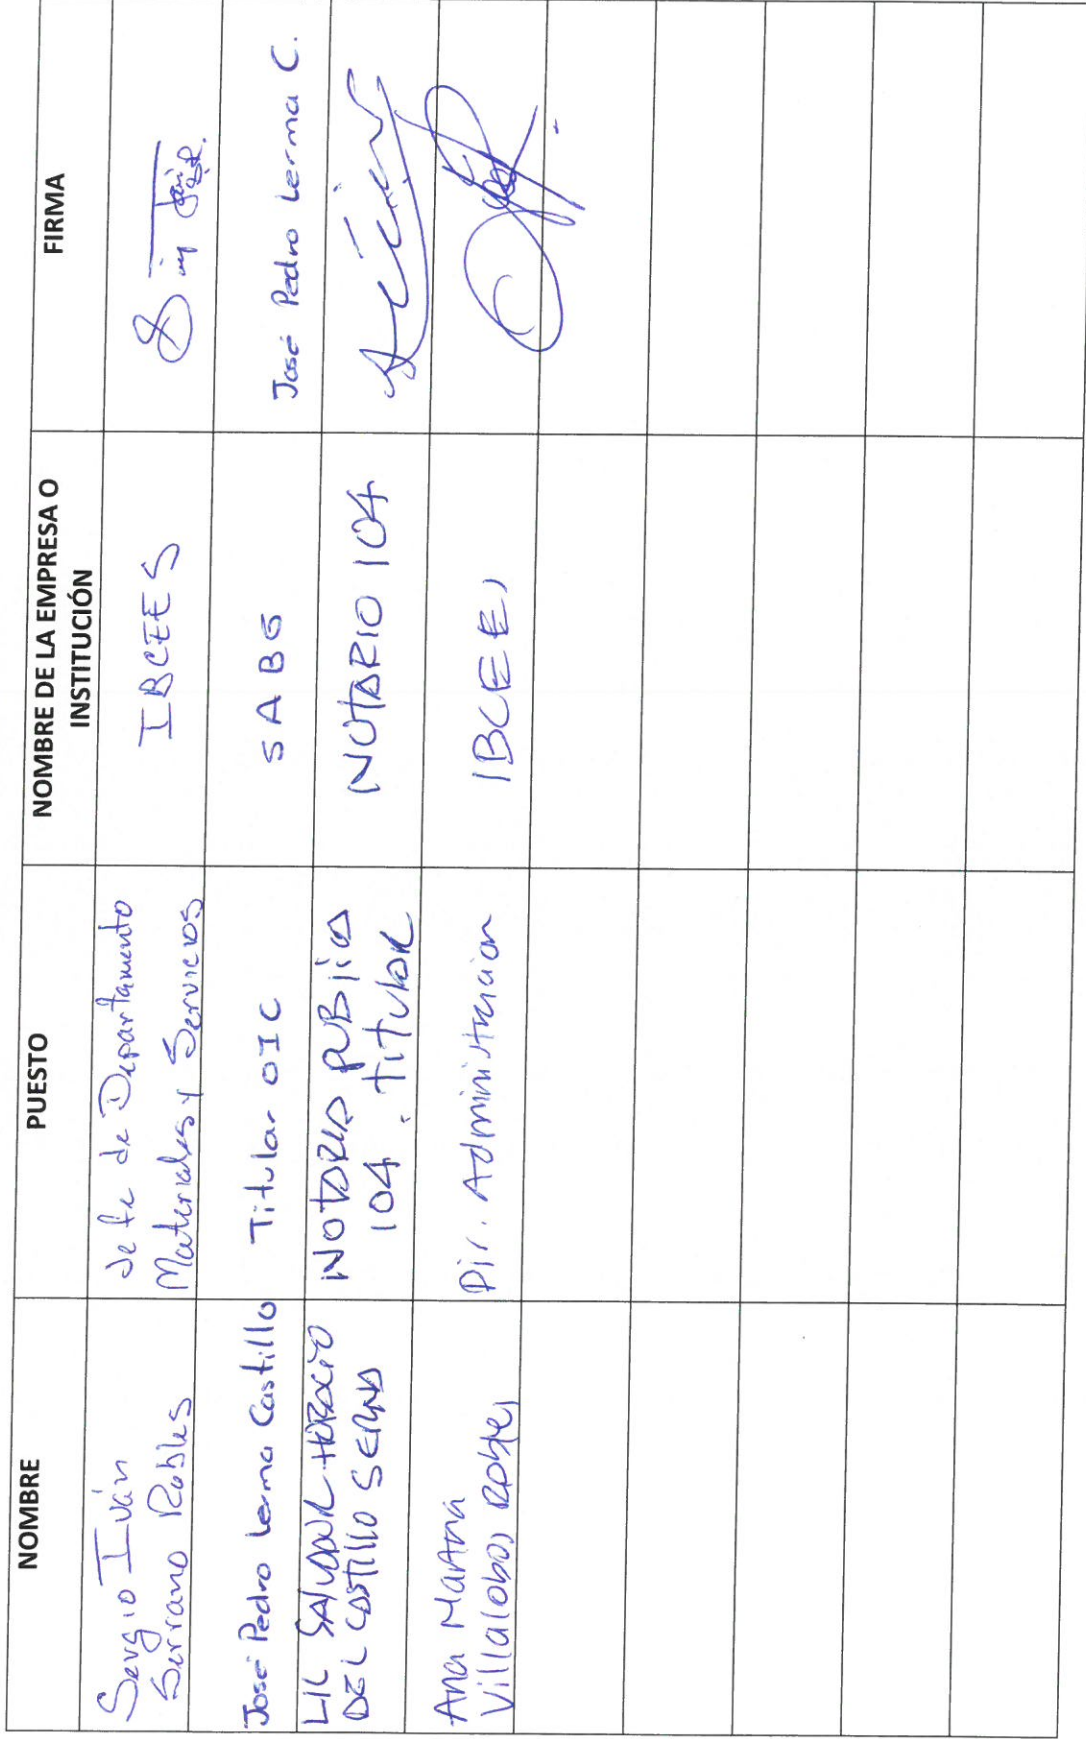 NOMBRE
PUESTO
NOMBRE DE LA EMPRESA O
INSTITUCIÓN
FIRMA
Sergio Iván
Serrano Robles
Jefe de Departamento
Materiales y Servicios
IBCEES
José Pedro Lerma Castillo
Titular OIC
SABG
José Pedro Lerma C.
LIC SALVADOR HORACIO
DEL CASTILLO SERNA
NOTARIO PUBLICO
104. TITULAR
NOTARIO 104
Ana María
Villalobos Robles
Dir. Administracion
IBCEES